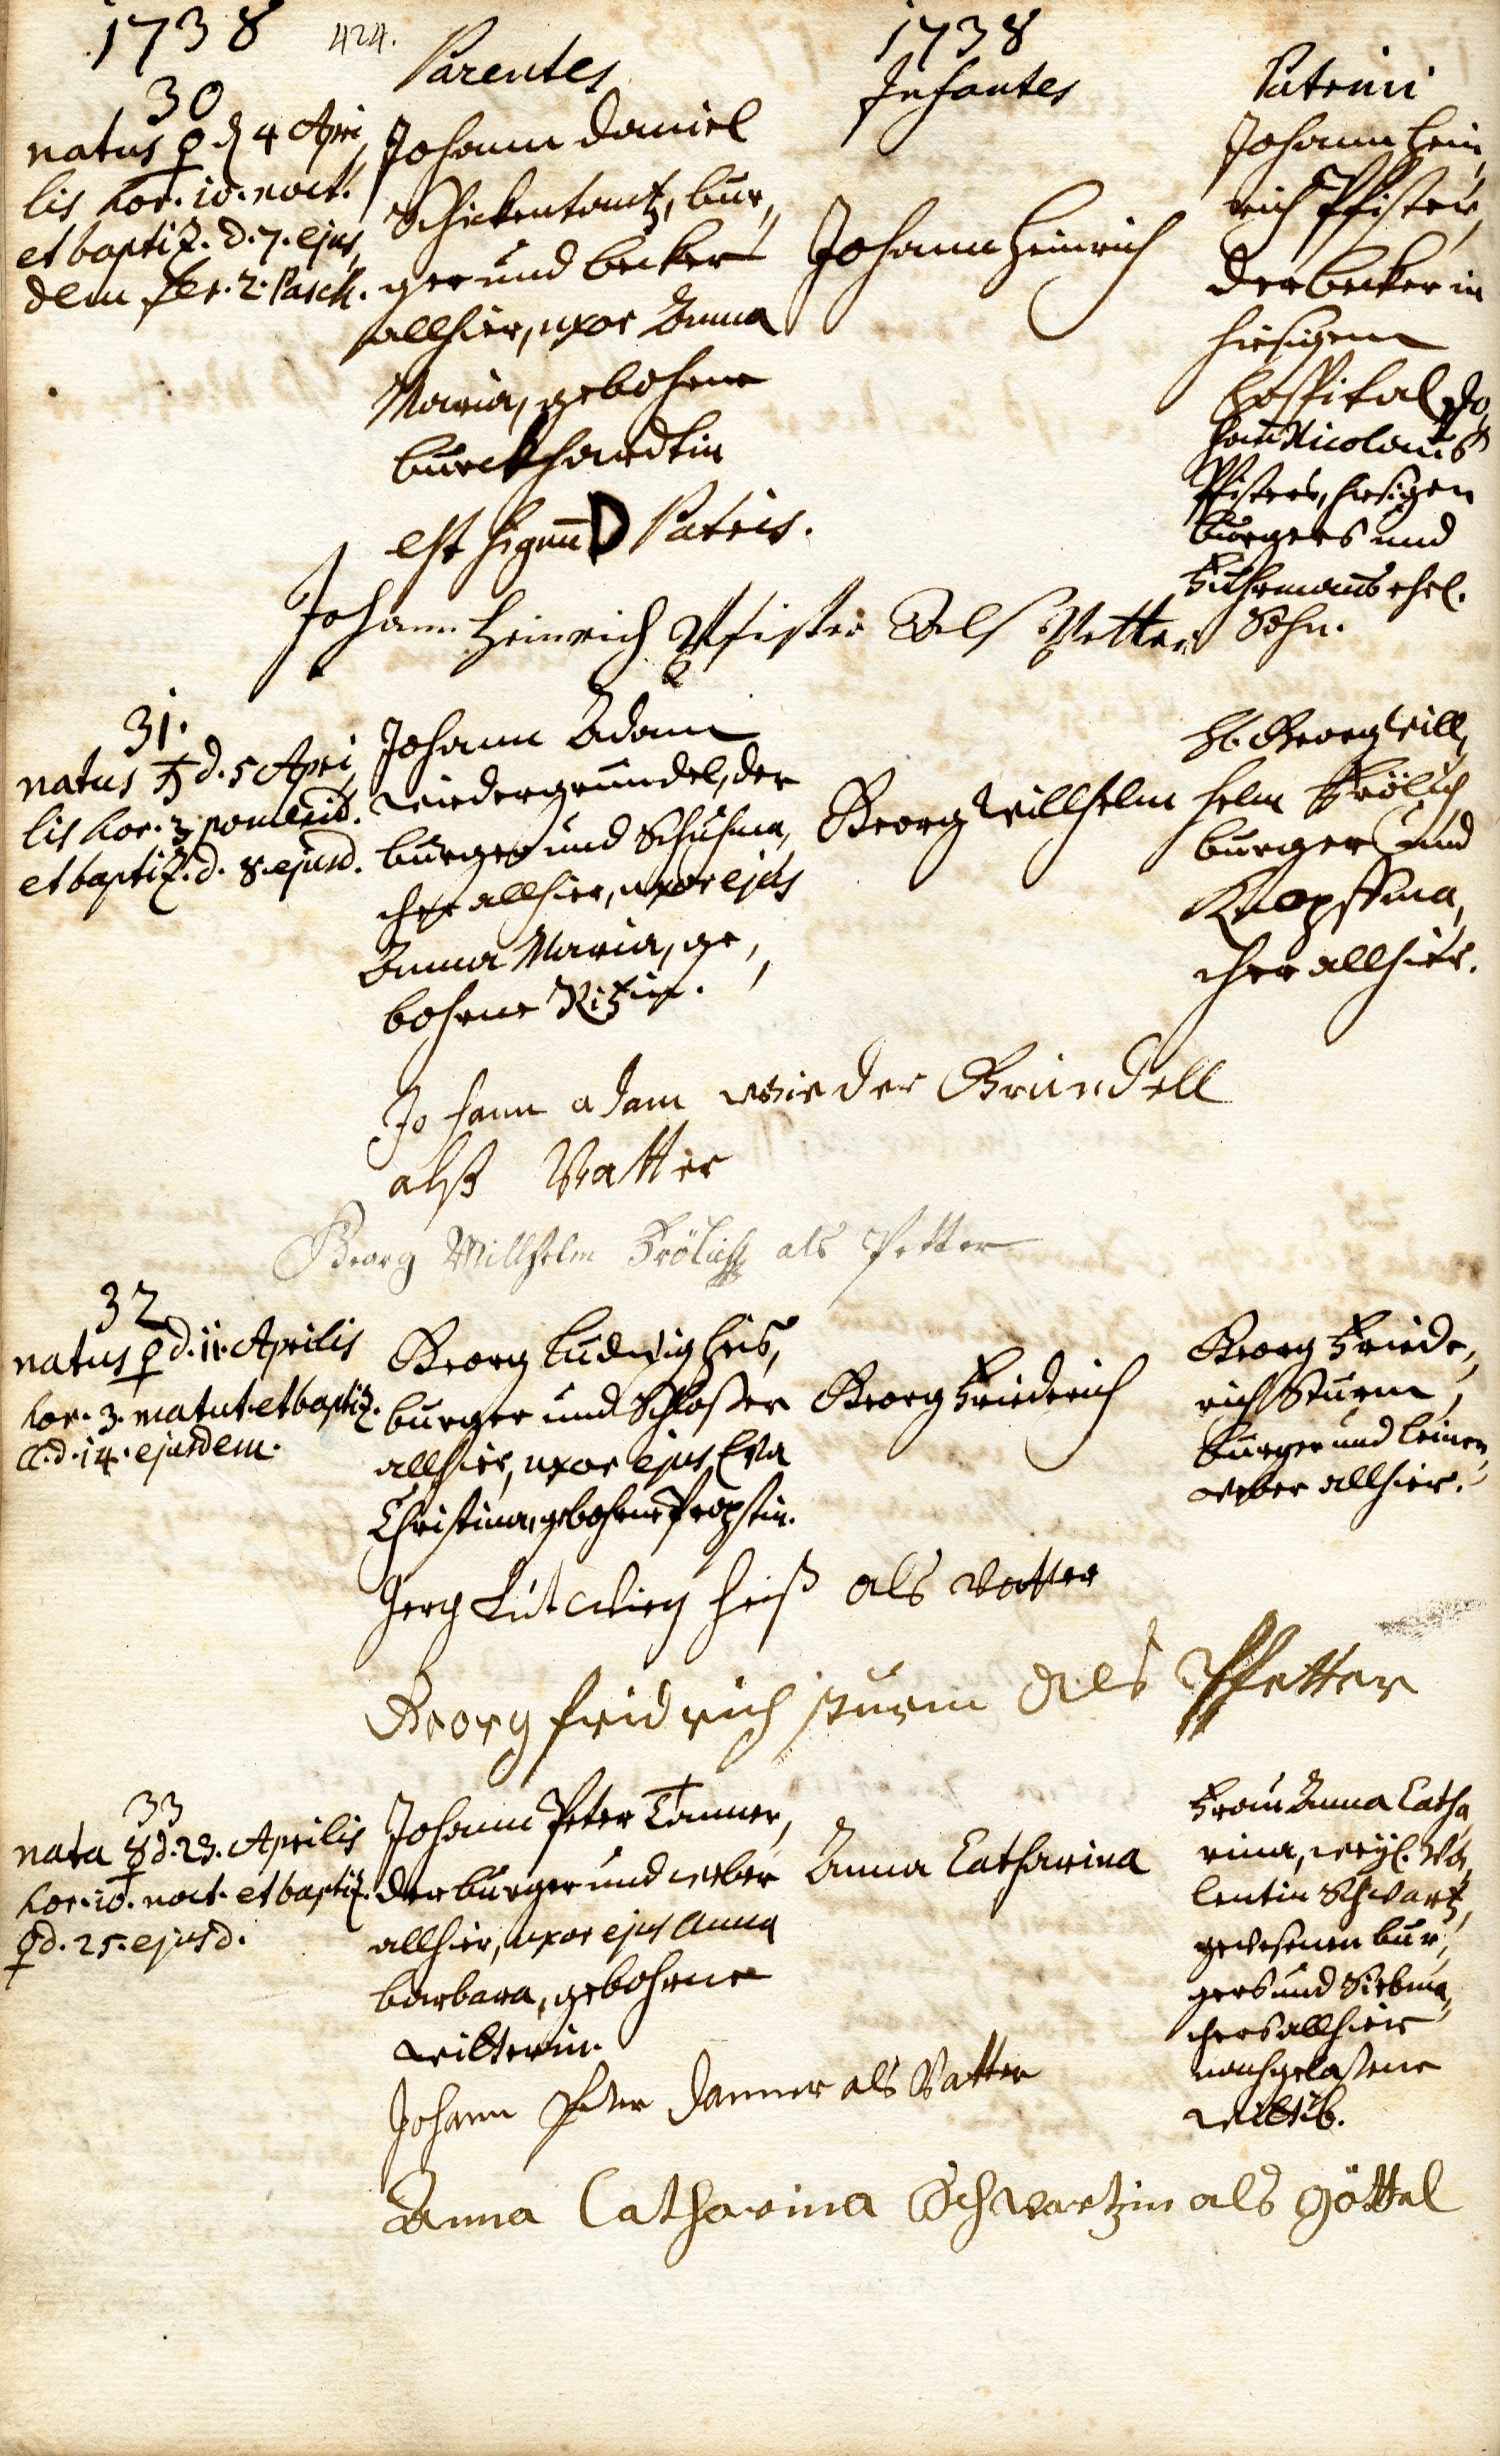 1738
424.
Parentes
1738
Infantes
Patrini
30
natus ♀ d 4 Apri,
lis hor. 10. noct.
et baptiz. d. 7. ejus,
dem fer. 2. Pasch.
Johann Daniel
Schickentantz, bur,,
ger und becker
allhier, uxor Anna
Maria, gebohrne
burckhardtin
est signū D Patris.
Johann Heinrich
Johann Hein,
rich Pfister,
der becker in
hiesigem
Hospital, Jo,
hañ Nicolaus
Pfisters, hiesigen
burgers und
Fuhrmañs ehel.
Sohn.
Johann Heinrich Pfister Als Petter
31.
natus ♄ d. 5 Apri,
lis hor. 3 pomerid.
et baptiz. d. 8. ejusd.
Johann Adam
Wiedergründel, der
burger und Schuhma,
cher allhier, uxor ejus
Anna Maria, ge,,
bohrne Ritzin.
Georg Willhelm
H. Georg Will,
helm Frölich
burger und
Knopffma,
cher allhier.
Johann adam wieder Gründell
alß Vatter
Georg Willhelm Frölich als Petter
32
natus ♀ d. 11. Aprilis
hor. 3. matut. et baptiz.
☾. d. 14. ejusdem.
Georg Ludwig Heis,
burger und Schloßer
allhier, uxor ejus Eva
Christina, gebohrne Propstin.
Georg Friederich
Georg Friede,,
rich Sturm,
burger und Leinen,,
weber allhier.
Jerg Lutwieg heiß als vatter
Georg fridrich sturm als Pfetter
33
nata ☿ d. 23. Aprilis
hor. 10. noct. et baptiz.
♀ d. 25. ejusd.
Johann Peter Tanner,
der burger und weber
allhier, uxor ejus Anna
barbara, gebohrne
Anna Catharina
Frau Anna Catha,
rina, weyl. Va,
lentin Schwartz,
gewesenen bur,,
gers und Siebma,
chers allhier
nachgelaßene
Wittib.
Johann Peter Danner als Vatter
Anna Catharina Schwartzin als göttel